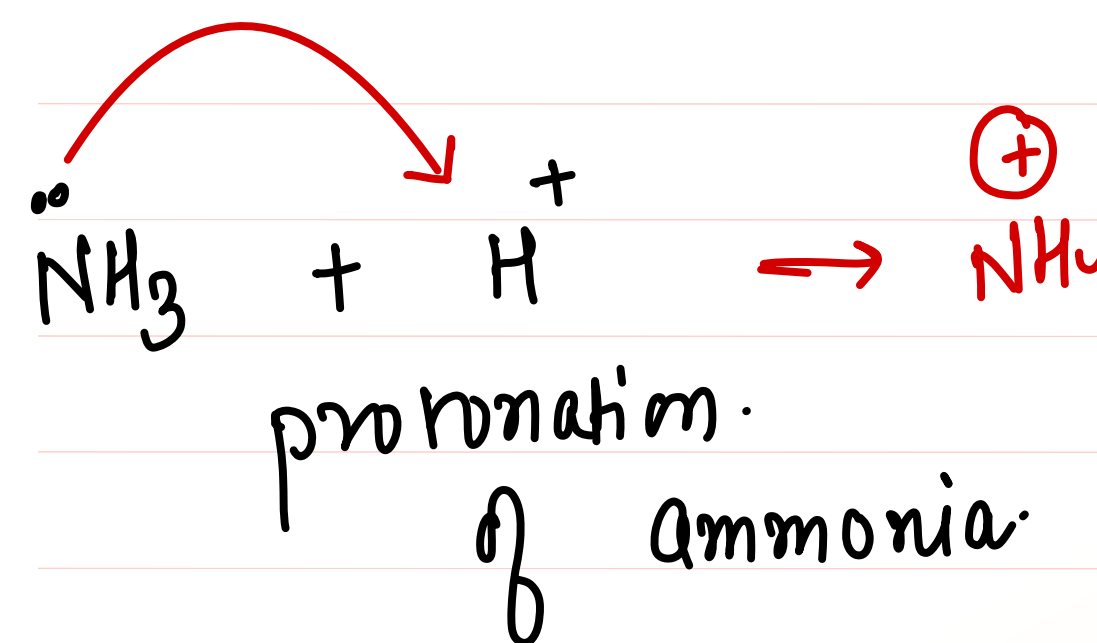 N̈H₃ + H⁺ → NH₄⊕
protonation.
of ammonia.